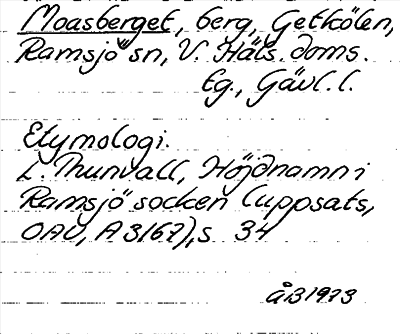 Moasberget, berg, Getkölen,
Ramsjö sn, V. Häls. doms.
Eg., Gävl. l.
Etymologi.
L. Thunvall, Höjdnamn i
Ramsjö socken (uppsats,
OAU, A 3167), s. 34
ÅB 1973